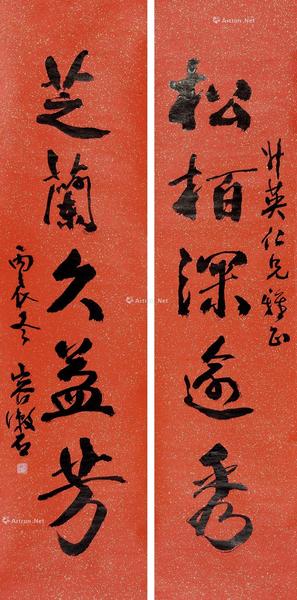 松柏深逾秀
英仁兄雅正
芝蘭久益芳
丙辰冬
漱石
Artron.Net
Artron.Net
Artron.Net
Artron.Net